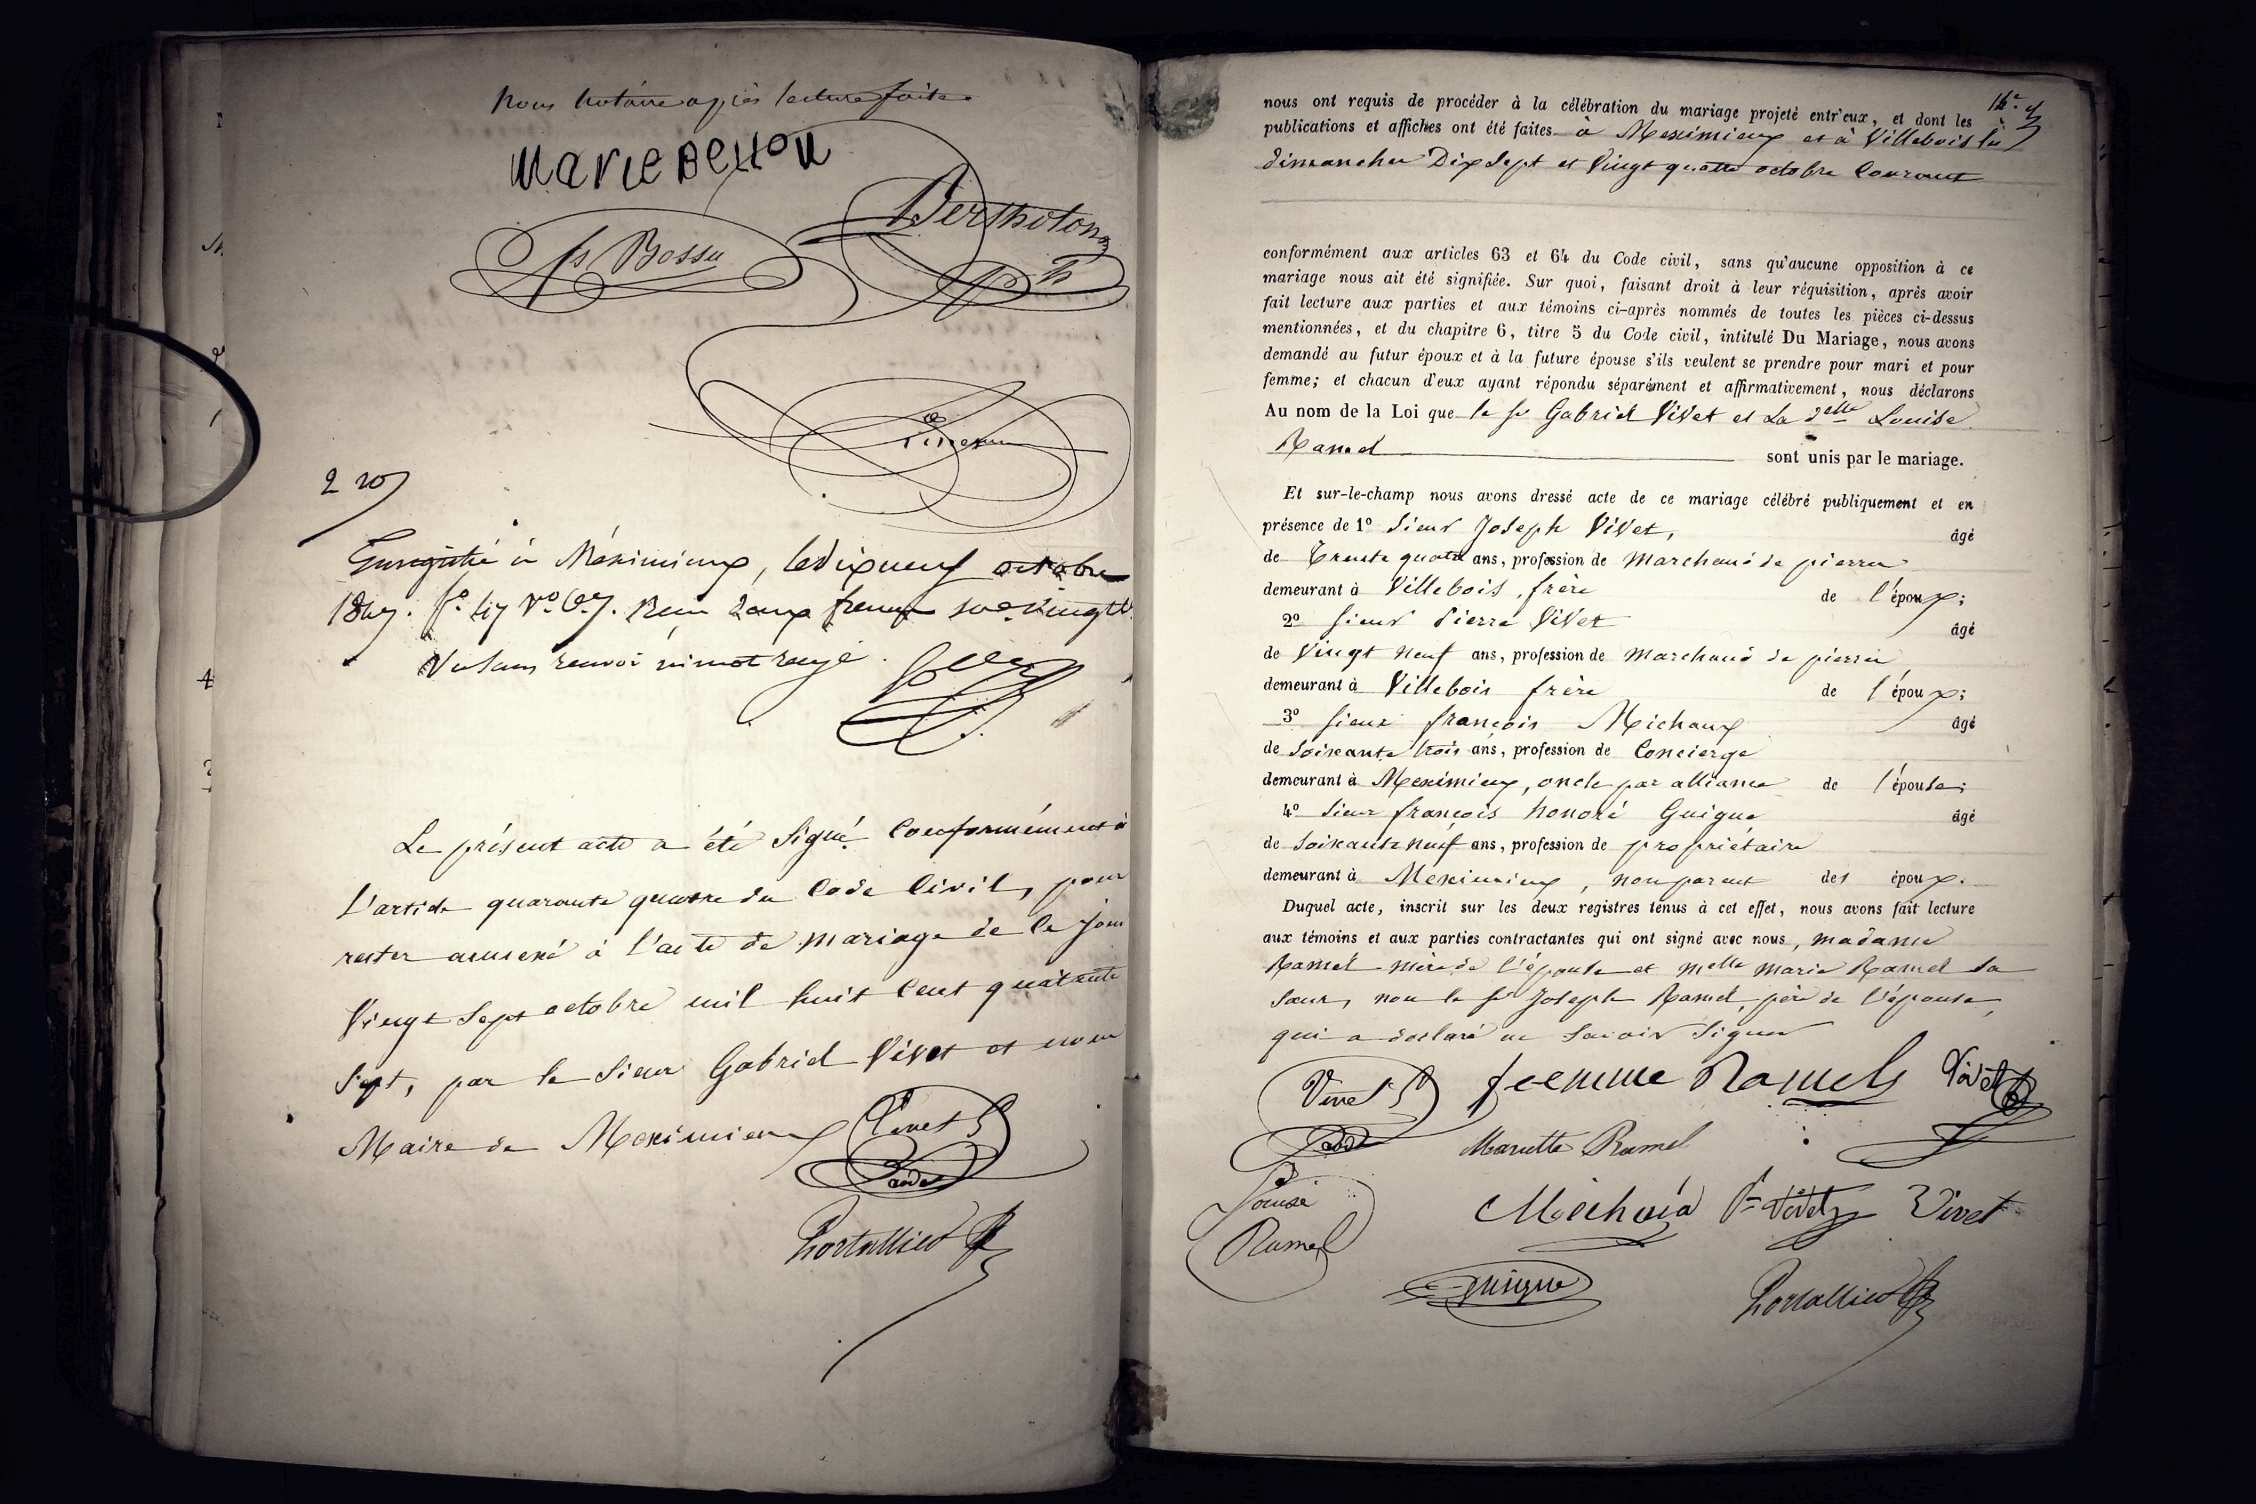 nous notaire après lecture faite
Marie Bellon
Bertholon
Ps Bossu
2 20
Enregistré à Méximieux, le dix neuf octobre
1847. fo. 47 Vo. C. 7. Reçu deux francs vingt
Vu sans renvoi ni mot rayé.
Le présent acte a été Signé Conformément à
L'article quarante quatre du Code Civil, pour
rester annexé à l'acte de mariage de ce jour
Vingt Sept octobre mil huit Cent quarante
Sept, par le Sieur Gabriel Vivet et nous
Maire de Meximieux
Vivet
Portallier
nous ont requis de procéder à la célébration du mariage projeté entr'eux, et dont les
publications et affiches ont été faites à Meximieux et à Villebois les
dimanches Dix Sept et Vingt quatre octobre Courant
conformément aux articles 63 et 64 du Code civil, sans qu'aucune opposition à ce
mariage nous ait été signifiée. Sur quoi, faisant droit à leur réquisition, après avoir
fait lecture aux parties et aux témoins ci-après nommés de toutes les pièces ci-dessus
mentionnées, et du chapitre 6, titre 5 du Code civil, intitulé Du Mariage, nous avons
demandé au futur époux et à la future épouse s'ils veulent se prendre pour mari et pour
femme; et chacun d'eux ayant répondu séparément et affirmativement, nous déclarons
Au nom de la Loi que le sr Gabriel Vivet et La delle Louise
Ramel sont unis par le mariage.
Et sur-le-champ nous avons dressé acte de ce mariage célébré publiquement et en
présence de 1o Sieur Joseph Vivet, âgé
de Trente quatre ans, profession de Marchand de pierres
demeurant à Villebois, frère de l'époux;
2o Sieur Pierre Vivet âgé
de Vingt neuf ans, profession de Marchand de pierres
demeurant à Villebois frère de l'époux;
3o Sieur françois Michaux âgé
de Soixante trois ans, profession de Concierge
demeurant à Meximieux, oncle par alliance de l'épouse;
4o Sieur françois honoré Guigue âgé
de Soixante neuf ans, profession de propriétaire
demeurant à Meximieux, non parent des époux.
Duquel acte, inscrit sur les deux registres tenus à cet effet, nous avons fait lecture
aux témoins et aux parties contractantes qui ont signé avec nous, madame
Ramel mère de l'épouse et melle marie Ramel sa
Sœur, non le sr Joseph Ramel, père de l'épouse,
qui a déclaré ne Savoir Signer
Vivet femme Ramels Vivet
Mariette Ramel
Louise
Ramel
Michaud Pre Vivet Vivet
guigue
Portallier